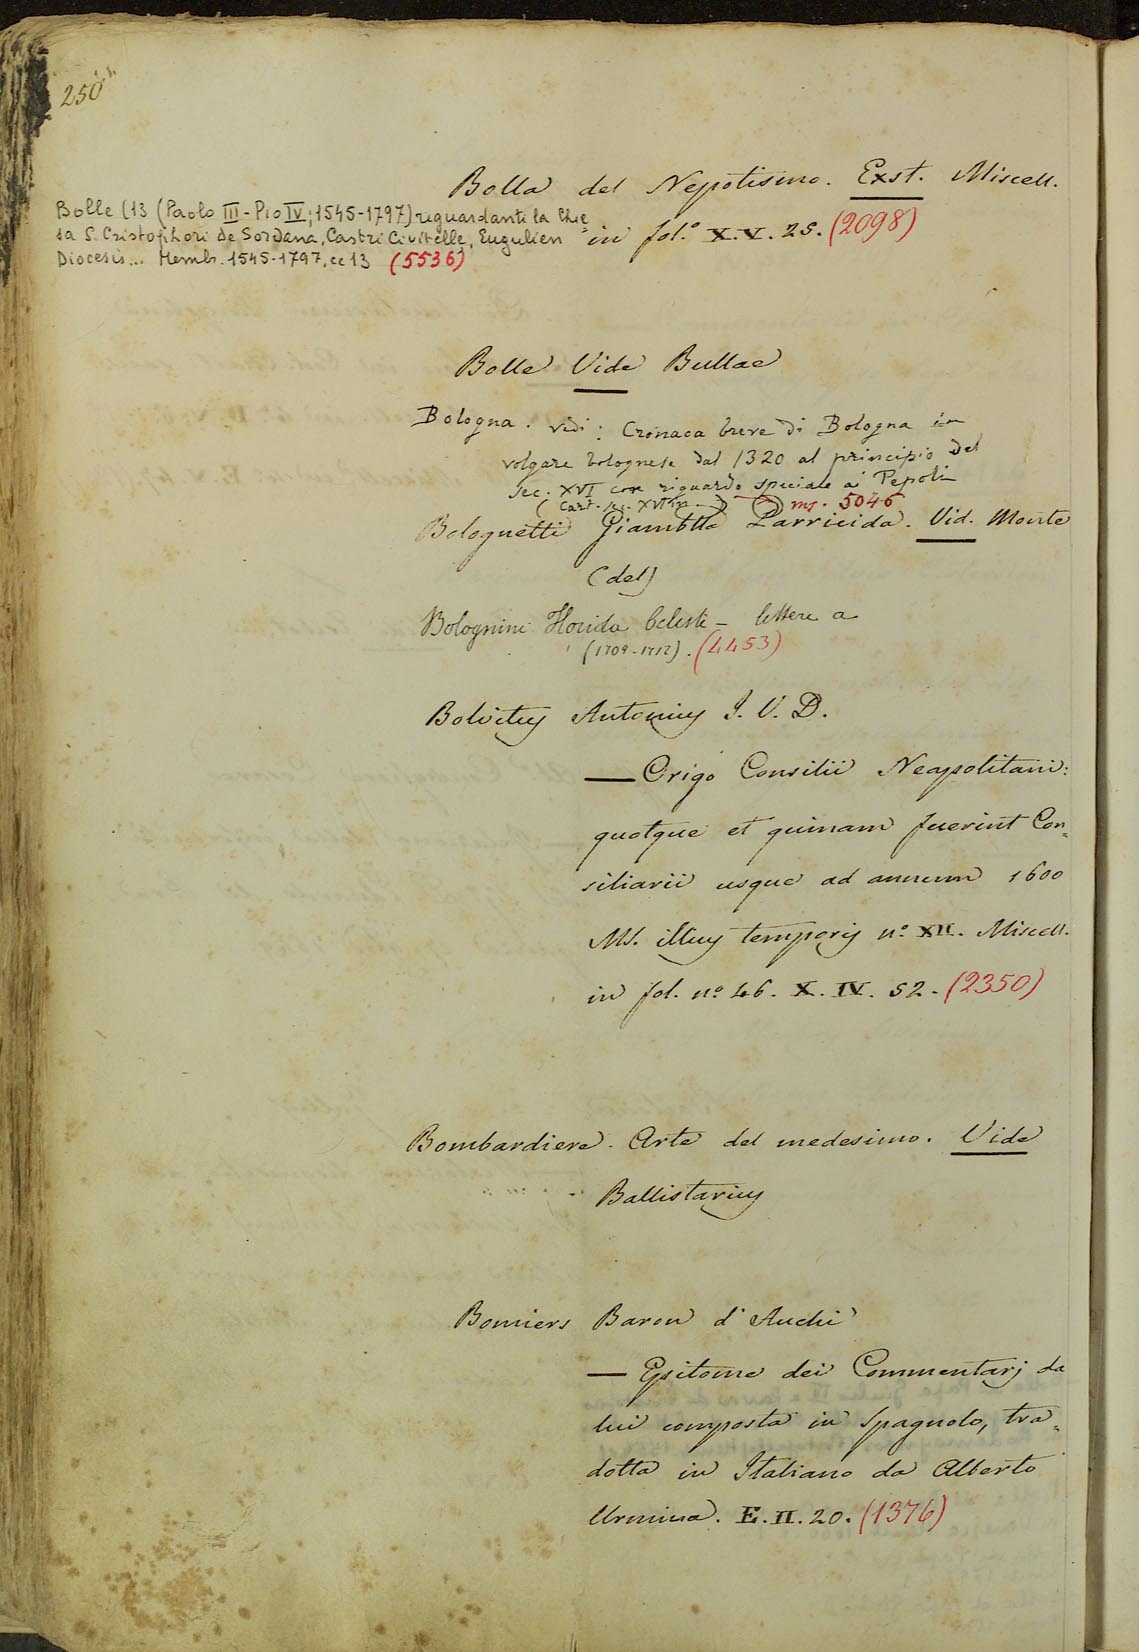 250
Bolla del Nepotismo. Exst. Miscell.
in fol.º X.V. 25. (2098)
Bolle (13 (Paolo III - Pio IV; 1545-1797) riguardanti la Chie
sa S. Cristophori de Sordana, Castri Civitelle, Eugulien
Diocesis... Memb. 1545-1797, cc 13 (5536)
Bolle Vide Bullae
Bologna. vedi: Cronaca breve di Bologna in
volgare bolognese dal 1320 al principio del
sec. XVI con riguardo speciale ai Pepoli
(Cart. sec. XVI ) ms. 5046
Bolognetti Giambtta Parricida. Vid. Monte
(del)
Bolognini Florida Celeste - lettere a
(1709-1712). (4453)
Bolvitus Antonius J. V. D.
— Origo Consilii Neapolitani:
quotque et quinam fuerint Con=
siliarii usque ad annum 1600
Ms. illius temporis nº XII. Miscell.
in fol. nº 46. X. IV. 52. (2350)
Bombardiere. Arte del medesimo. Vide
Ballistarius
Bomiers Baron d'Auchi
— Epitome dei Commentarj da
lui composta in Spagnolo, tra=
dotta in Italiano da Alberto
Urmina. E. II. 20. (1376)